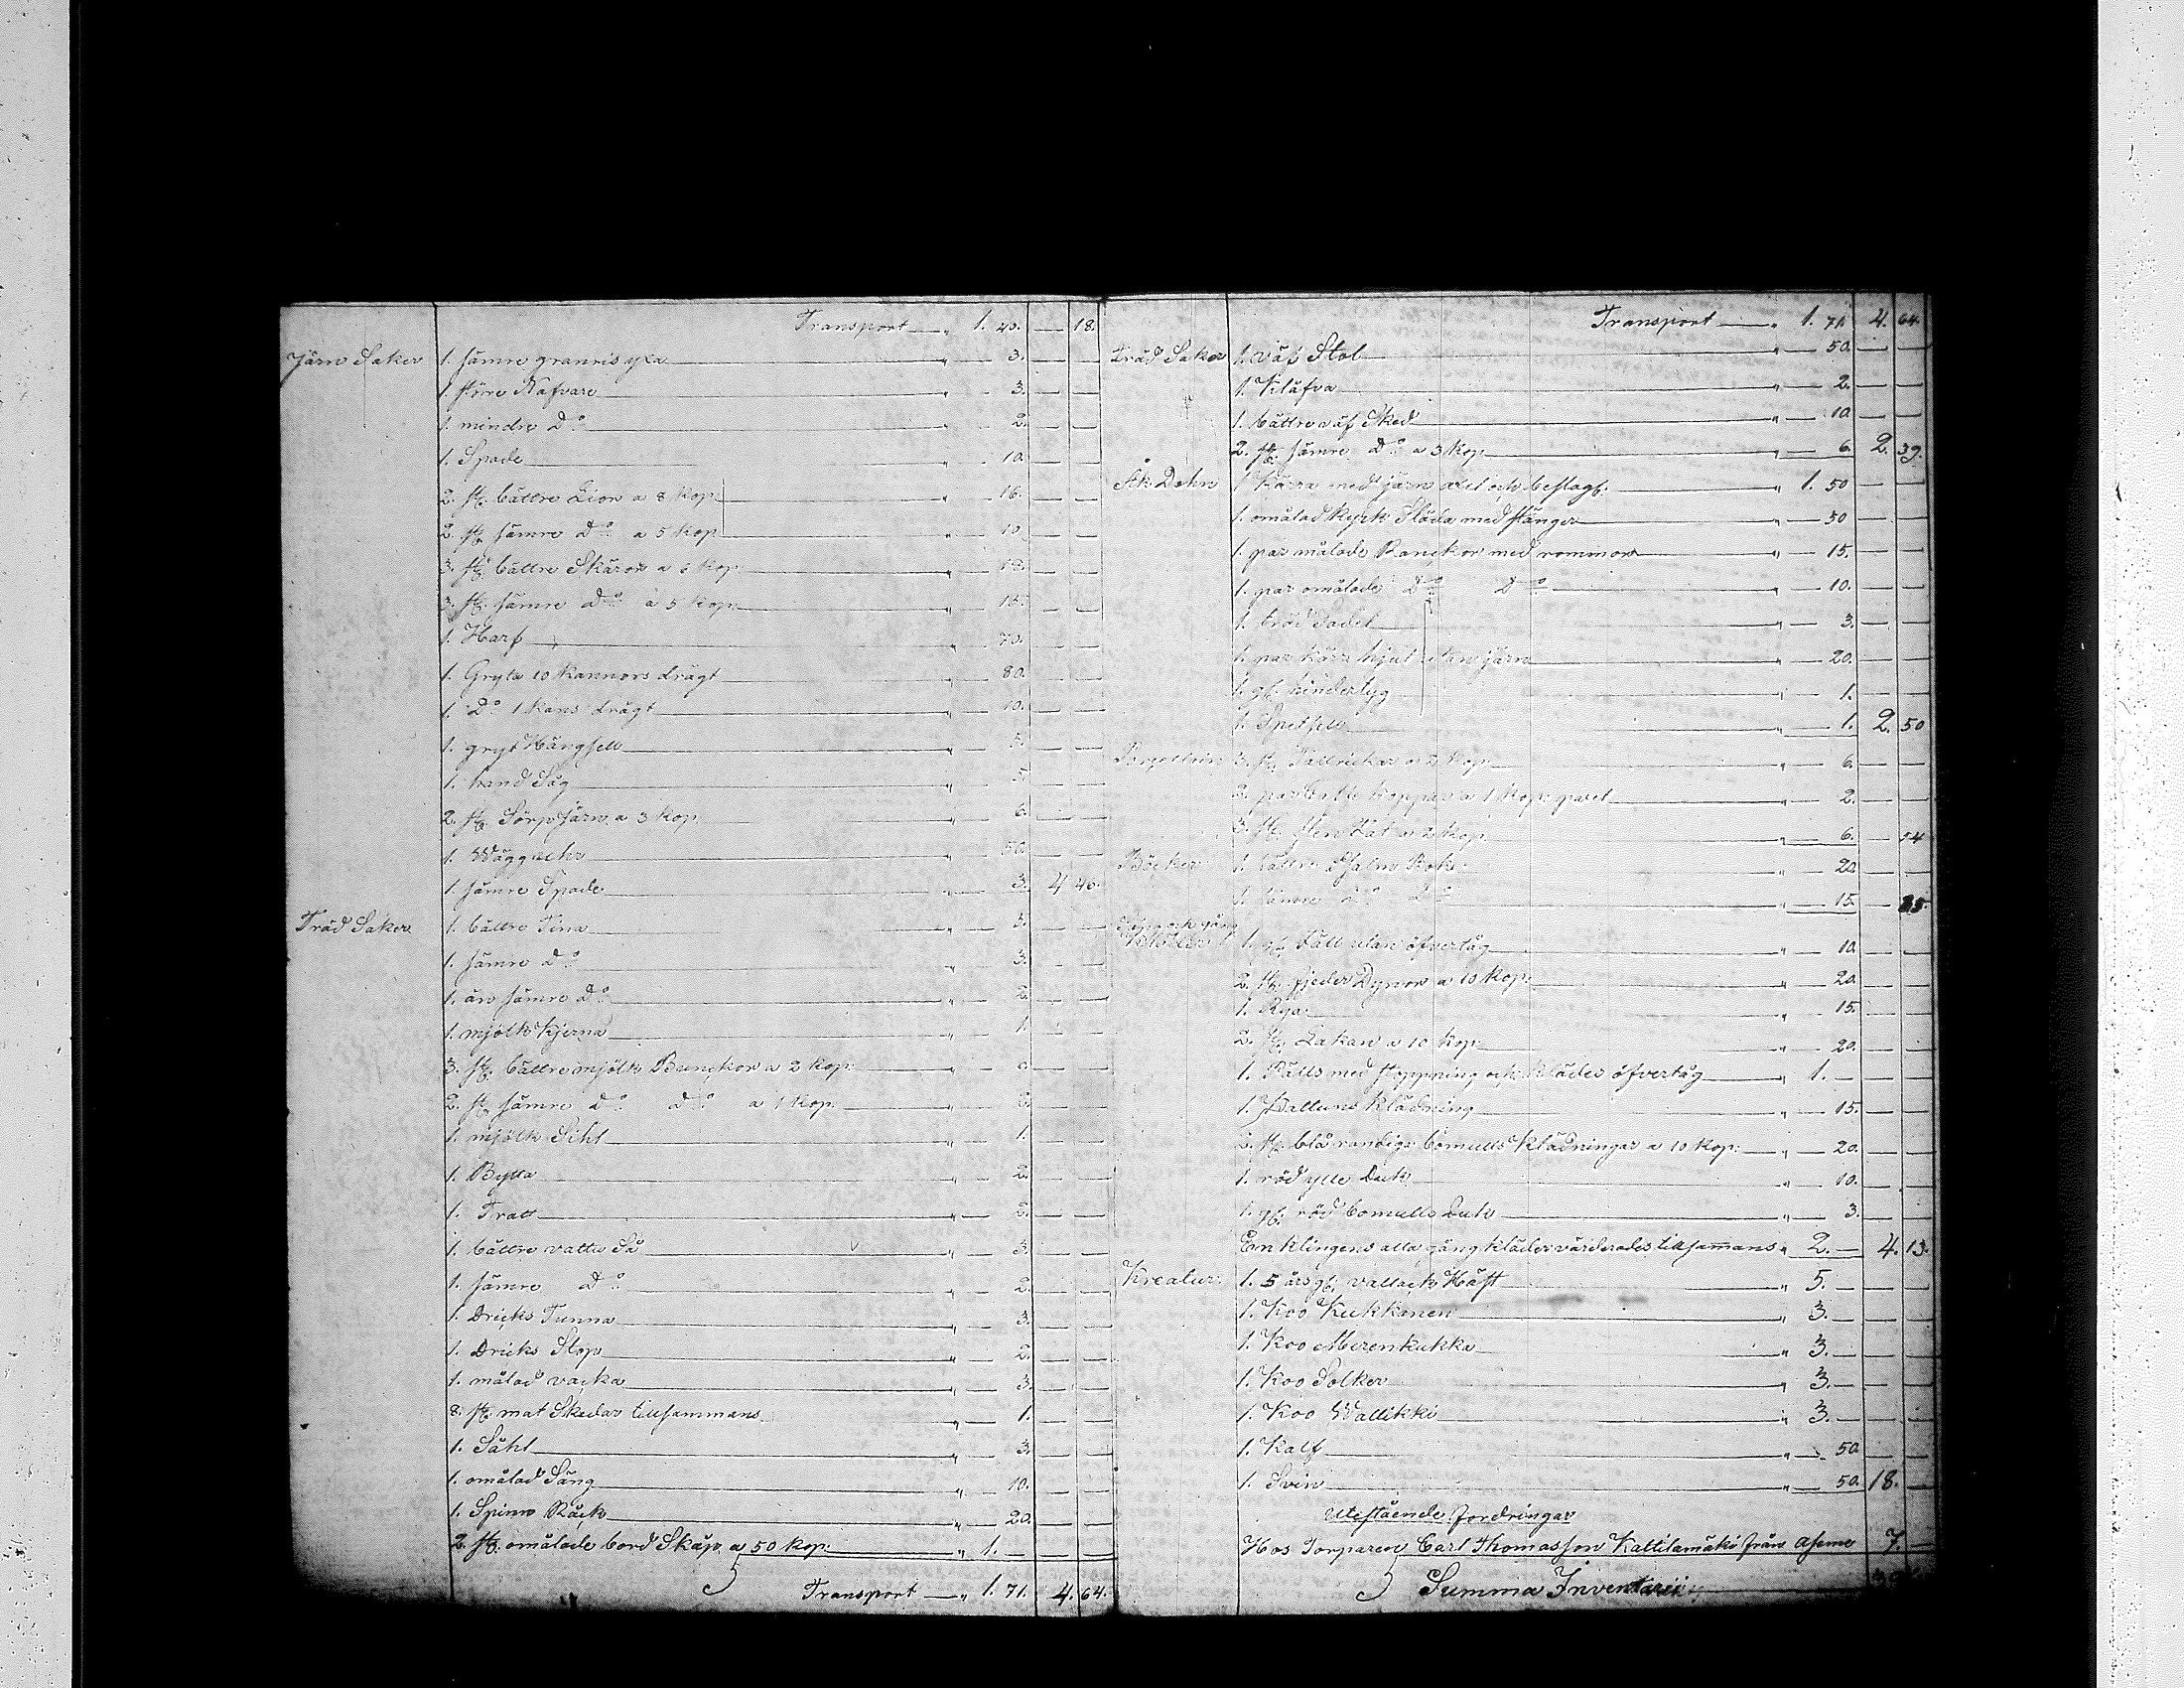 Transport — „ 1. 40. — 18.
Järn Saker 1. sämre granris yxa „ 3. — —
1. större Nafvare „ 3. — —
1. mindre Do „ 2. — —
1. Spade „ 10. — —
2. st. bättre Lior a 8 kop. „ 16. — —
2. st. sämre Do a 5 kop. „ 10. — —
3. st. bättre Skäror a 6 kop. „ 18. — —
3. st. sämre Do a 5 kop. „ 15. — —
1. Harf „ 70. — —
1. Gryta 10 kannors drägt „ 80. — —
1. Do 1 kans drägt „ 10. — —
1. gryt Hängsell „ 5. — —
1. hand Såg „ 5. — —
2. st. Sörpjärn a 3 kop. „ 6. — —
1. Wägguhr „ 50. — —
1. sämre Spade „ 3. 4 46.
Träd Saker 1. bättre Tina „ 5. — —
1. sämre Do „ 3. — —
1. än sämre Do „ 2. — —
1. mjölk Kjerna „ 1. — —
3. st. bättre mjölk Bunckor a 2 kop. „ 6. — —
2. st. sämre do do a 1 kop. „ 2. — —
1. mjölk Sihl „ 1. — —
1. Bytta „ 2. — —
1. Tratt „ 2. — —
1. bättre vattu Så „ 3. — —
1. sämre do „ 2. — —
1. Dricks Tunna „ 3. — —
1. Dricks Stop „ 2. — —
1. målad vacka „ 3. — —
8. st. mat Skedar tillsammans „ 1. — —
1. Såhl „ 3. — —
1. omålad Säng „ 10. — —
1. Spinn Råck „ 20. — —
2. st. omålade bord Skåp a 50 kop. „ 1. — — —
Transport — „ 1. 71. 4. 64.
Transport — „ 1. 71. 4. 64.
Träd Saker 1. väf Stol „ 50. — —
1. Klåfva „ 2. — —
1. bättre väf Sked „ 10. — —
2. st. sämre Do a 3 kop. „ 6. 2. 39.
Åk Dohn 1. Kärra med järn axel och beslag „ 1. 50 — —
1. omålad kyrk Släda med stänger „ 50 — —
1. par målade Ranckor med rommor „ 15. — —
1. par omålade Do Do „ 10. — —
1. träd Sadel „ 3. — —
1. par kärr hjul utan järn „ 20. — —
1. gl. hindertyg „ 1. — —
1. „ 1. 2. 50
3. st. Tallrickar a 2 kop. „ 6. — —
2. par Caffe koppar a 1 kop. paret „ 2. — —
3. st. sten Fat a 2 kop. „ 6. — 14
Böcker 1. bättre Psalm Bok „ 20. — —
1. sämre do do „ 15. — 35.
Säng och gång Kläder 1. gl. Fäll utan öfvertåg „ 10. — —
2. st. fjeder Dynor a 10 kop. „ 20. — —
1. Rya „ 15. — —
2. st. Lakan a 10 kop. „ 20. — —
1. Pälts med stoppning och Klädes öfvertåg „ 1. — — —
1. Kattuns Klädning „ 15. — —
2. st. blå randiga bomulls Klädningar a 10 kop. „ 20. — —
1. röd ylle Duk „ 10. — —
1. gl. röd bomulls Duk „ 3. — —
Enklingens alla gång kläder värderades tillsammans „ 2. — 4. 13.
Kreatur 1. 5 års gl. vallack Häst „ 5. — — —
1. Koo Kukkanen „ 3. — — —
1. Koo Merenkukka „ 3. — — —
1. Koo Solker „ 3. — — —
1. Koo Wallikki „ 3. — — —
1. Kalf „ 50. — —
1. Svin „ 50. 18. —
Utestående fordringar
Hos Torparen Carl Thomasson Kattilamäki från Aseme 7. —
Summa Inventarii